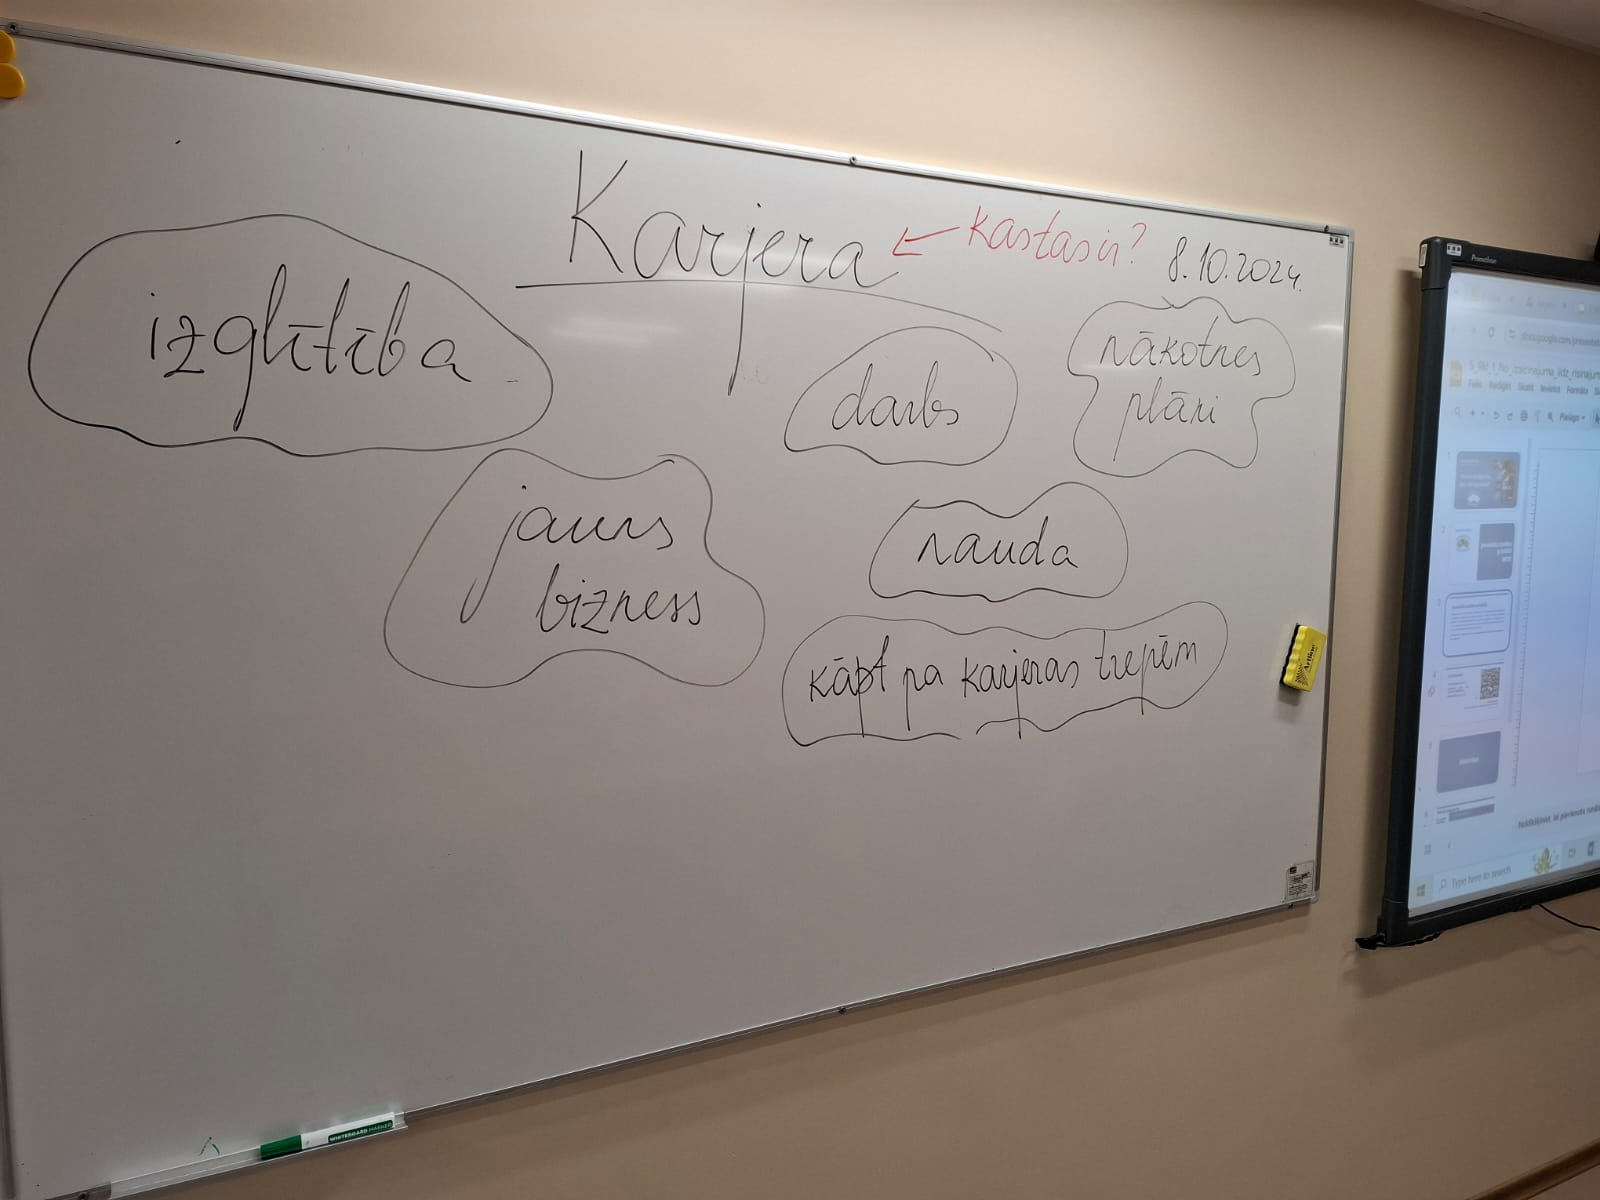 Karjera
kas tas ir?
8.10.2024.
izglītība
darbs
nākotnes
plāni
jauns
bizness
nauda
kāpt pa karjeras trepēm
Promethean
docs.google.com/presentati
Type here to search
WHITEBOARD MARKER